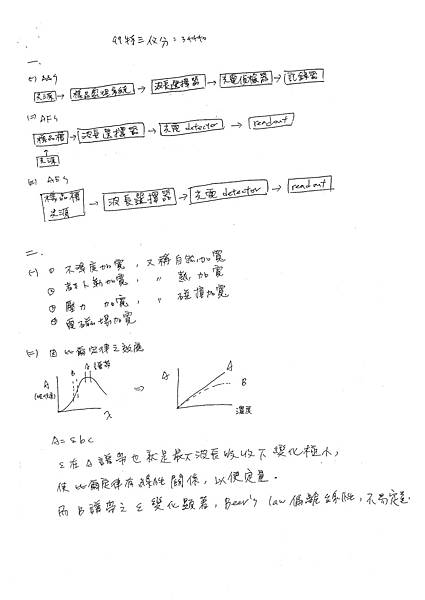 99特三儀分:34440
一、
(一) AAS
光源 → 樣品處理系統 → 波長選擇器 → 光電偵檢器 → 記錄器
(二) AFS
樣品槽 → 波長選擇器 → 光電 detector → readout
↑
光源
(三) AES
樣品槽
光源 → 波長選擇器 → 光電 detector → readout
二、
(一) ① 不準度加寬，又稱自然加寬
② 都卜勒加寬，〃 熱加寬
③ 壓力 加寬，〃 碰撞加寬
④ 電磁場加寬
(二) 因 比爾定律之效應
B A 譜帶
A
λ
⇒
A
A
B
濃度
A = εbc
ε在A譜帶也就是最大波長吸收下變化極小，
使比爾定律有線性關係，以便定量。
而B譜帶之ε變化顯著，Beer's law偏離線性，不易定量.